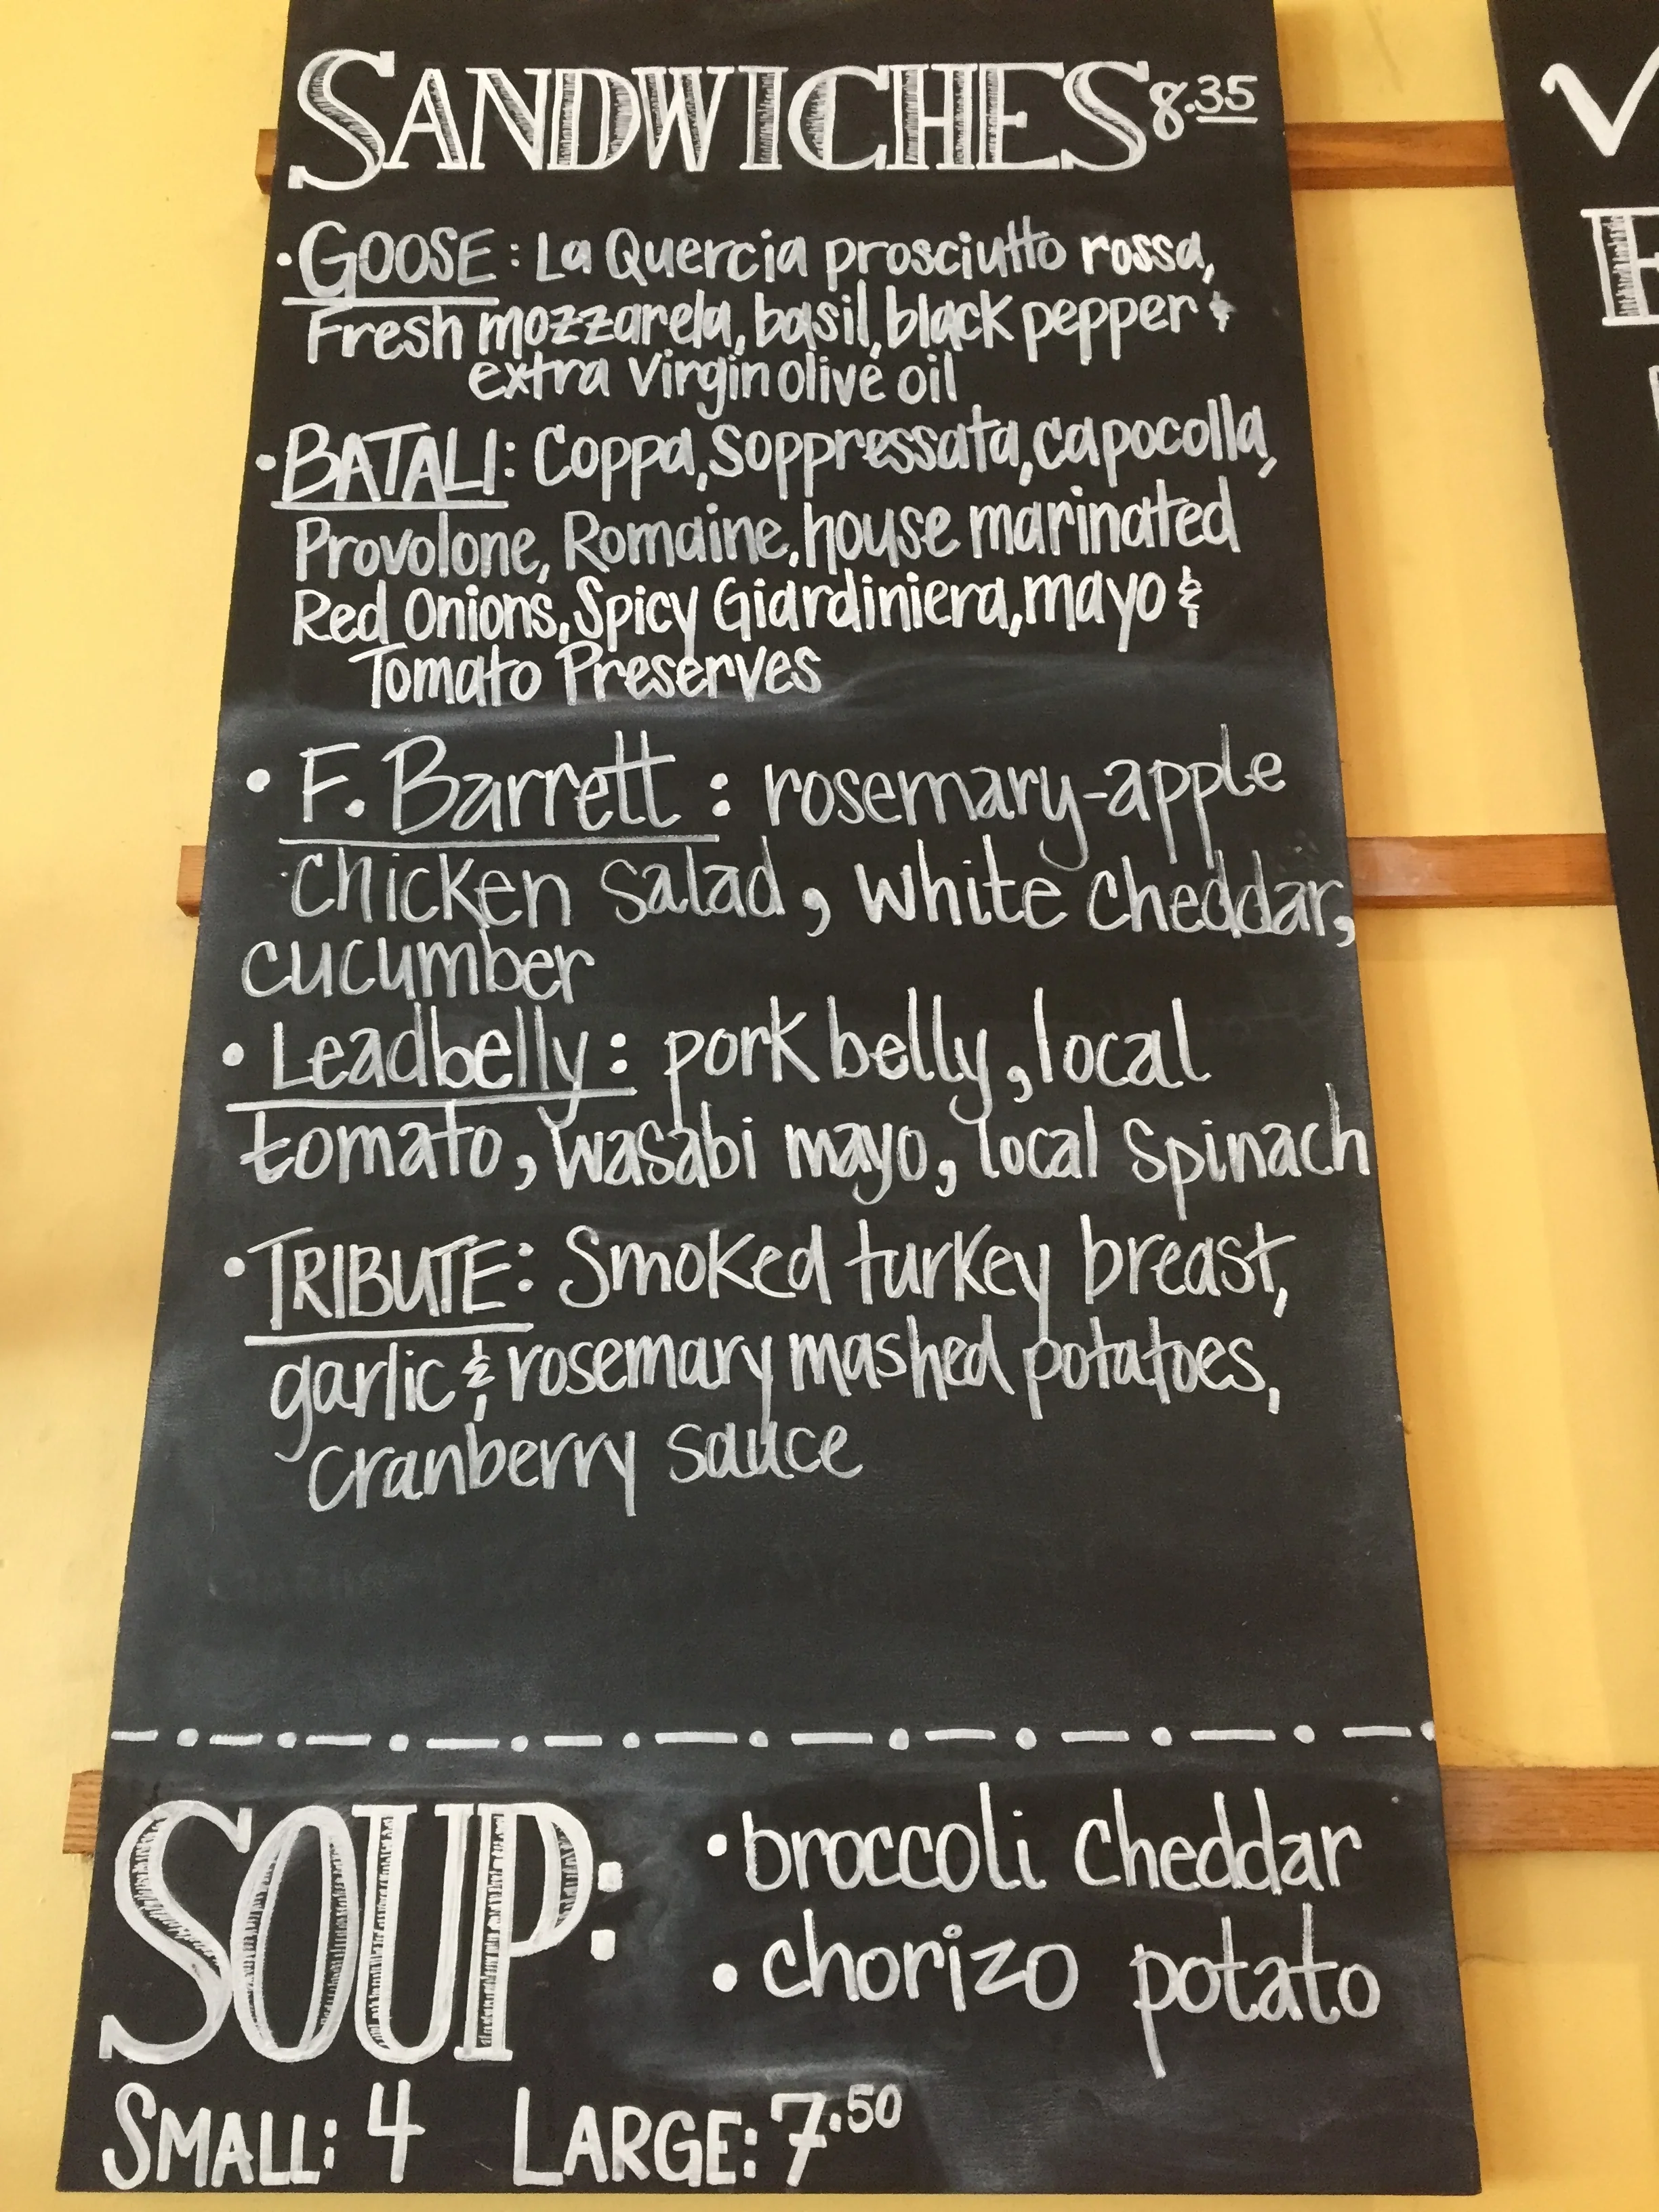 SANDWICHES 8.35
• GOOSE: La Quercia prosciutto rossa,
Fresh mozzarela, basil, black pepper &
extra virgin olive oil
• BATALI: Coppa, Soppressata, capocolla,
Provolone, Romaine, house marinated
Red Onions, Spicy Giardiniera, mayo &
Tomato Preserves
• F. Barrett: rosemary-apple
chicken salad, white cheddar,
cucumber
• Leadbelly: pork belly, local
tomato, wasabi mayo, local spinach
• TRIBUTE: Smoked turkey breast,
garlic & rosemary mashed potatoes,
cranberry sauce
SOUP:
• broccoli cheddar
• chorizo potato
SMALL: 4 LARGE: 7.50